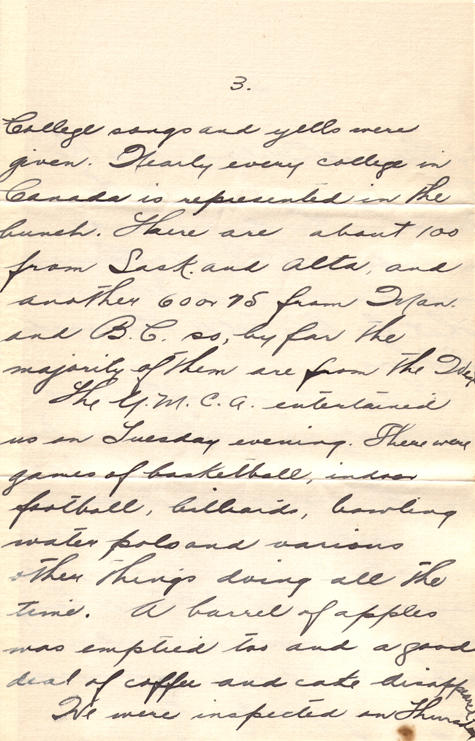 3.
College songs and yells were
given. Nearly every college in
Canada is represented in the
bunch. There are about 100
from Sask. and Alta, and
another 60 or 75 from Man.
and B.C. so, by far the
majority of them are from the West
The Y.M.C.A. entertained
us on Tuesday evening. There were
games of basketball, indoor
football, billiards, bowling
water polo and various
other things doing all the
time. A barrel of apples
was emptied too and a good
deal of coffee and cake disappeared
We were inspected on Thursday